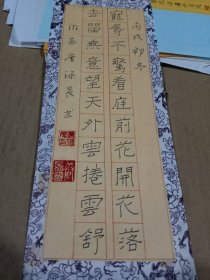 丙戌初冬
寵辱不驚看庭前花開花落
去留無意望天外雲捲雲舒
書